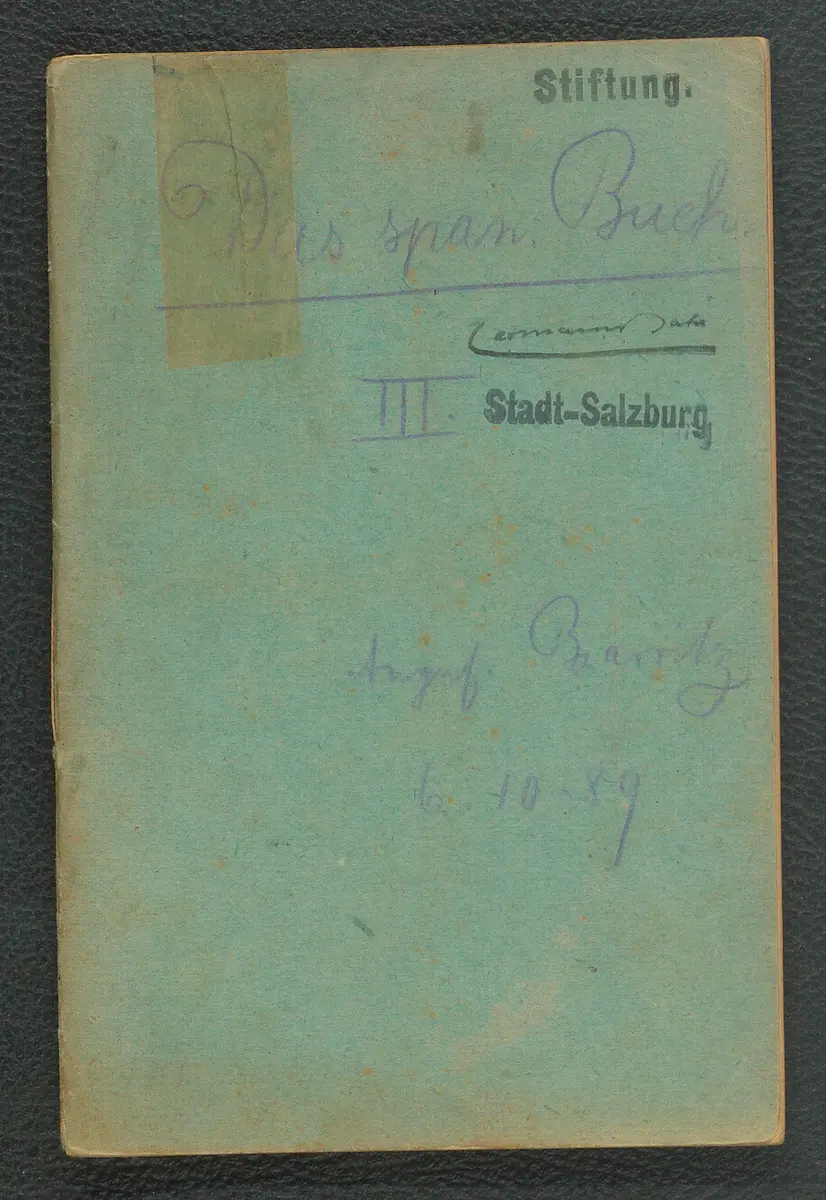 Stiftung.
Das span. Buch.
Hermann Bahr
III.
Stadt-Salzburg
Angef. Biarritz
6.-10-89